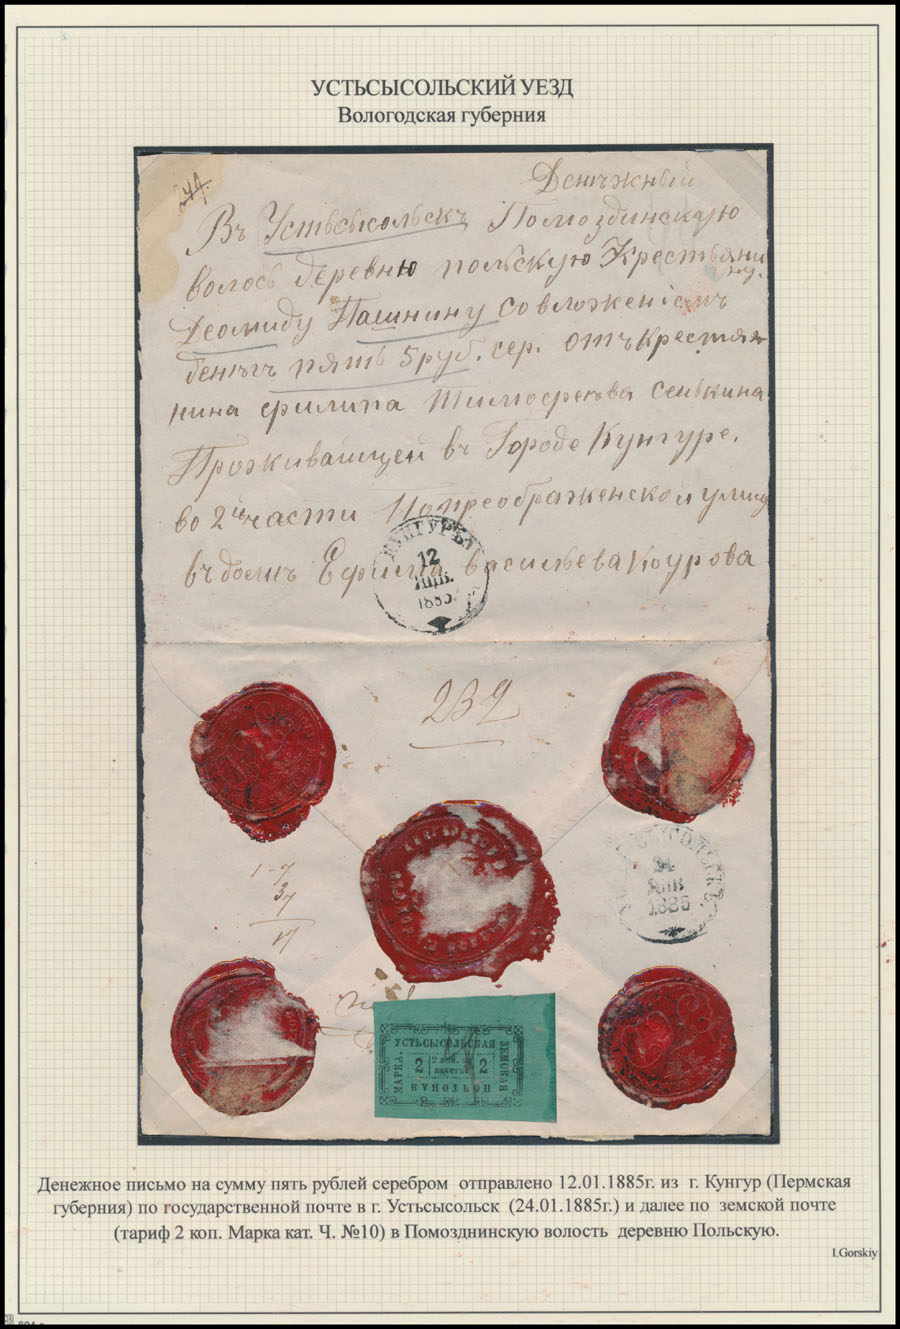 УСТЬСЫСОЛЬСКИЙ УЕЗД
Вологодская губерния
244.
Денежный
Въ Устьсысольскъ Помоздинскую
волось деревню польскую Крестьяни
ну.
Деомиду Пашнину совложеніемъ
денегъ пять 5 руб. сер. отъ крестья
нина филипа Тимофеева сенькина
Проживающей въ Городе Кунгуре.
во 2й части Попреображенской улице
въ доме Ефима васильева Коурова
КУНГУРЪ
12
ЯНВ.
1885
239
24
ЯНВ
1885
1-7
37
17
УСТЬСЫСОЛЬСКАЯ
МАРКА.
ЗЕМСКАЯ
2
2 коп. за
пакетъ
2
ПОЧТОВАЯ
Денежное письмо на сумму пять рублей серебром отправлено 12.01.1885г. из г. Кунгур (Пермская
губерния) по государственной почте в г. Устьсысольск (24.01.1885г.) и далее по земской почте
(тариф 2 коп. Марка кат. Ч. №10) в Помозднинскую волость деревню Польскую.
I.Gorskiy